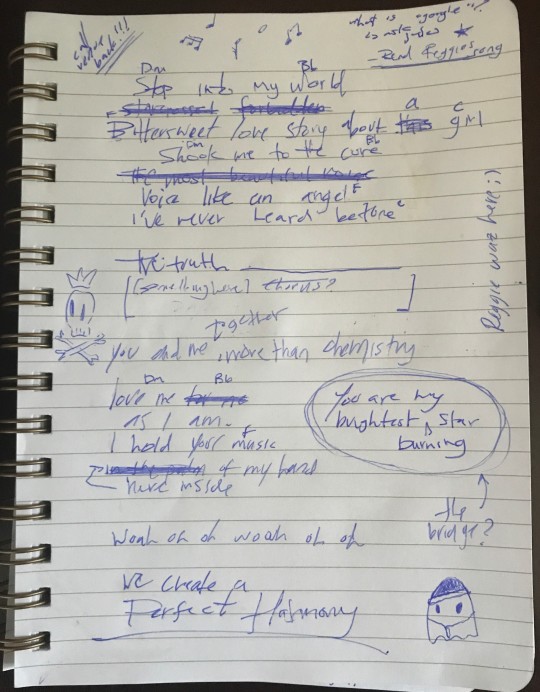 call
back!!!
what is a google!!!
- Read Reggies song
Dm Bb
Step into My World
a c
Bittersweet love story about this girl
Dm
Shook me to the core
Bb
the most beautiful voice
Voice like an angel F
I've never heard before c
the truth
[(something here) chorus?]
together
you and me, more than chemistry
Dm Bb
love me for me
as I am.
F
I hold your music
in the palm of my hand
here inside
You are my
brightest star
burning
the
bridge?
Reggie waz here ;)
Woah oh oh woah oh oh
We create a
Perfect Harmony